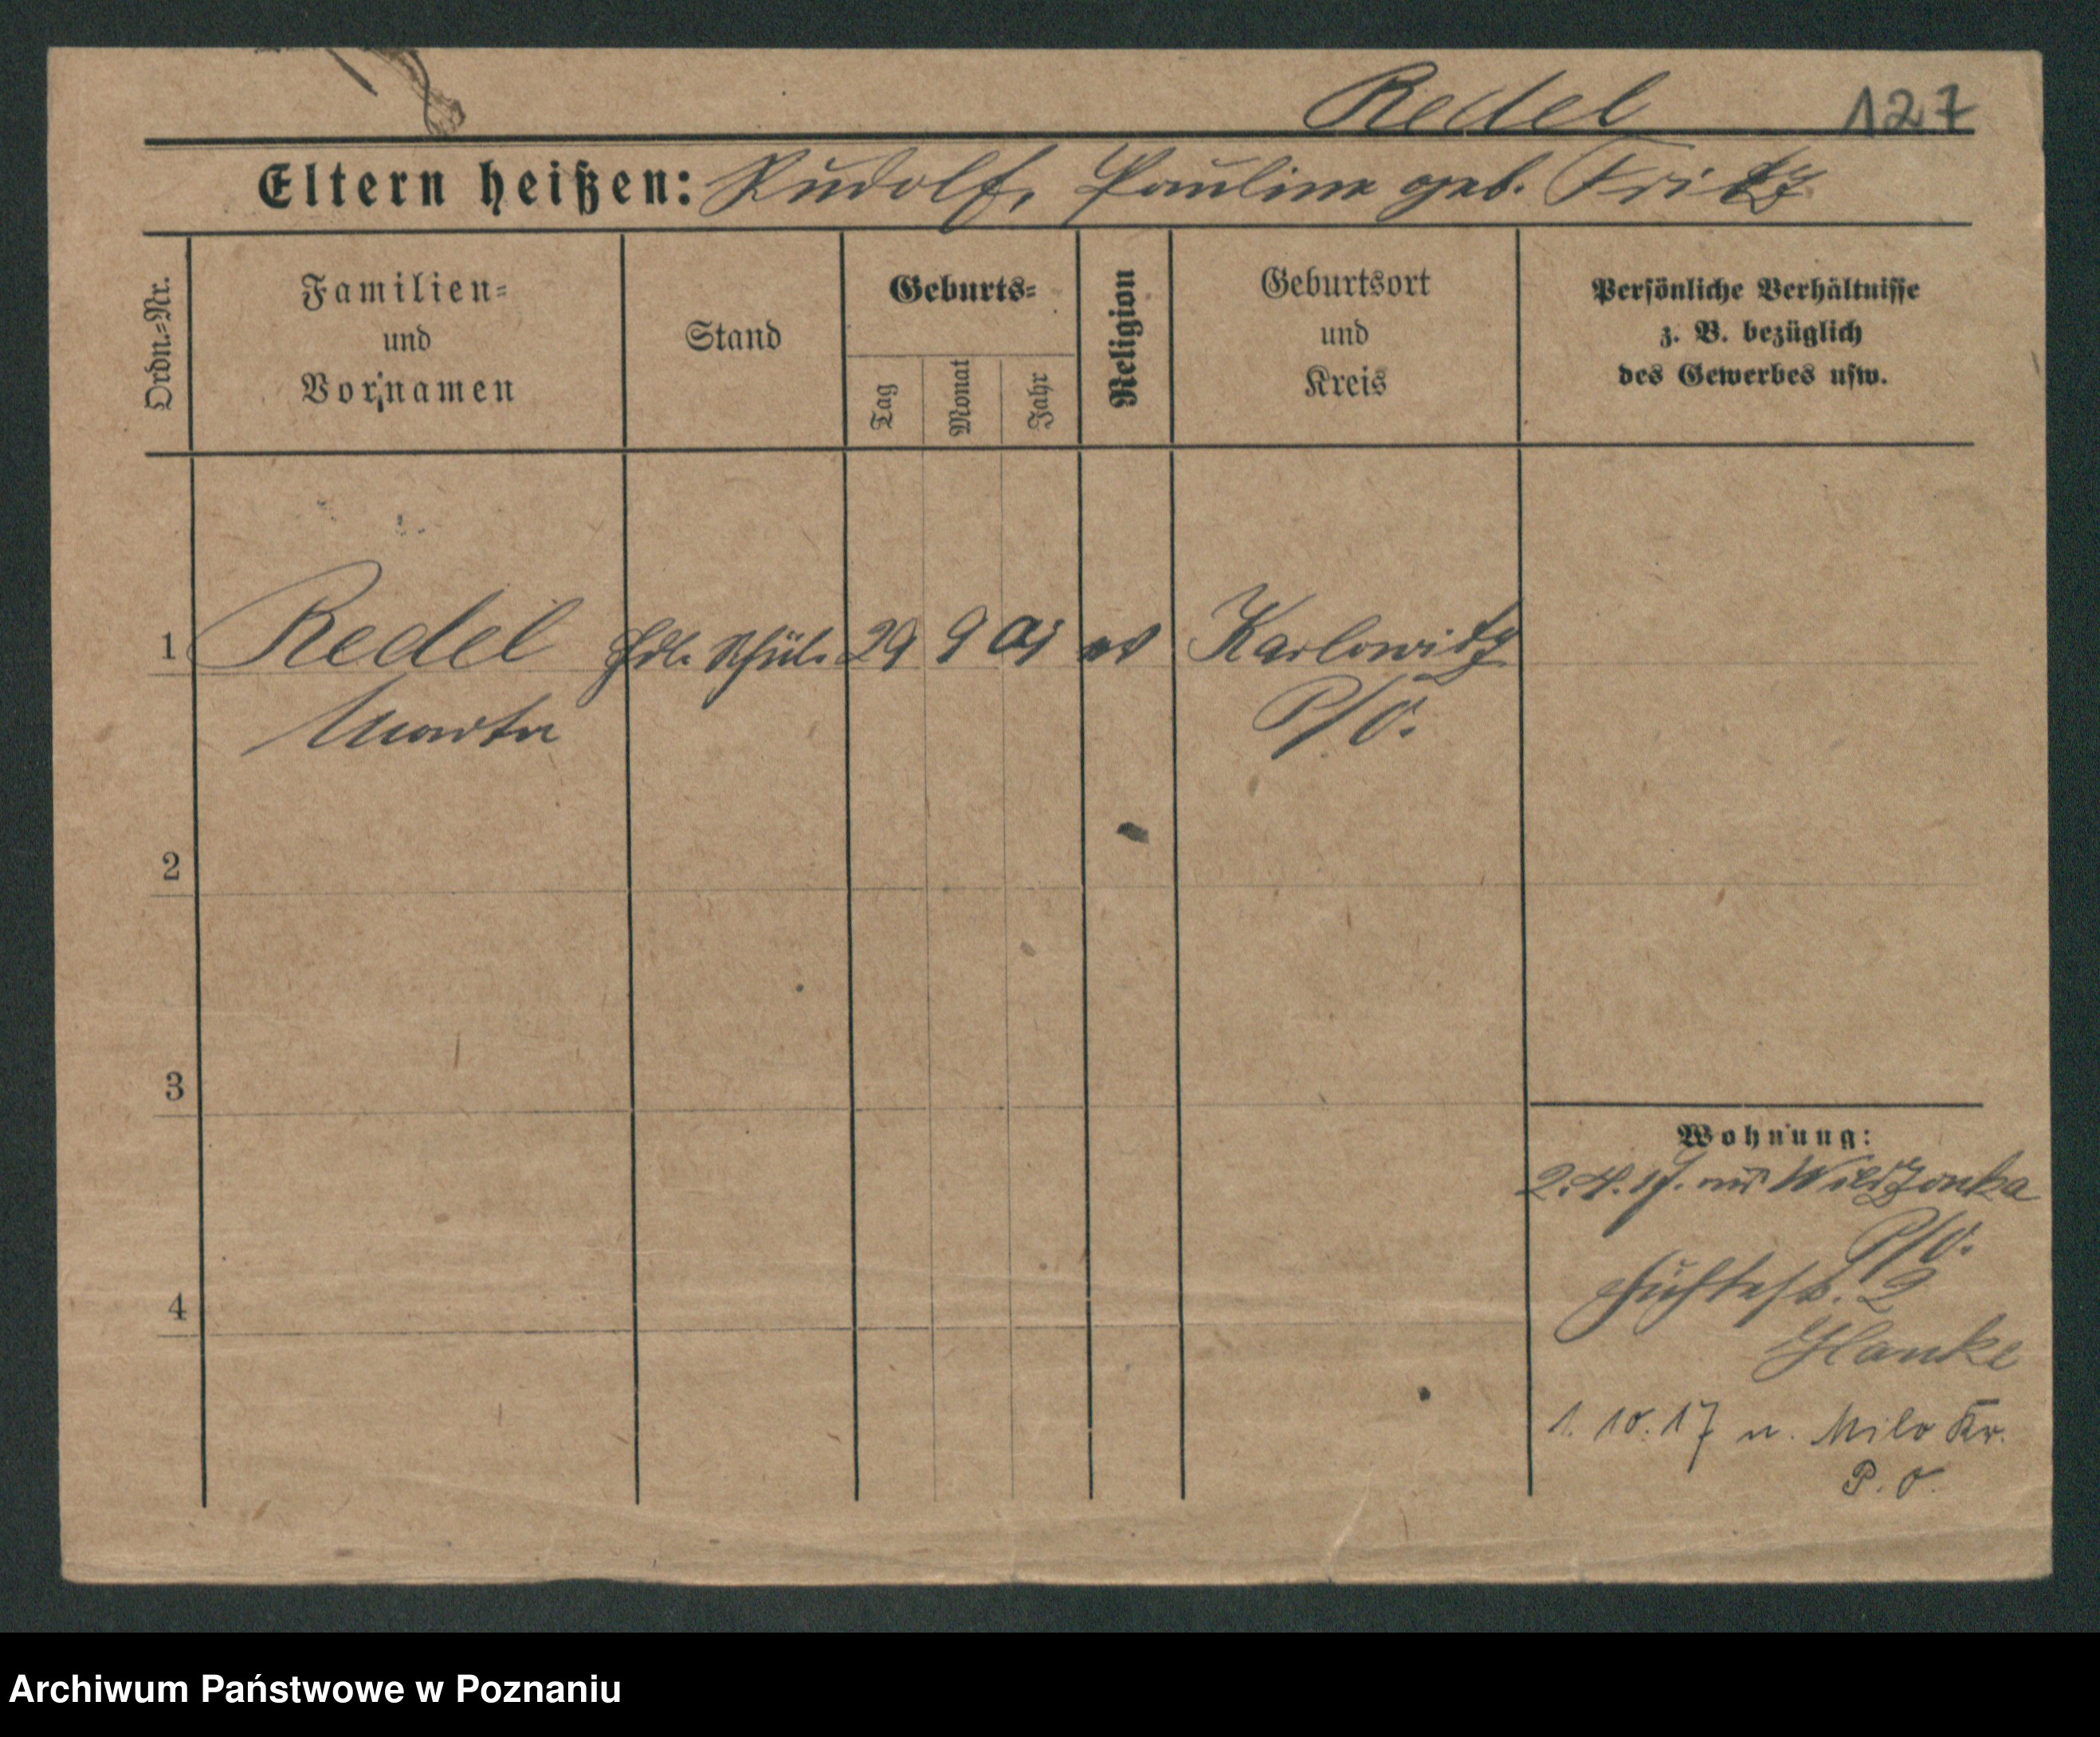 Redel 127
Eltern heißen: Rudolf, Pauline geb. Fritz
Ordn.=Nr.
Familien=
und
Vornamen
Stand
Geburts=
Tag
Monat
Jahr
Religion
Geburtsort
und
Kreis
Persönliche Verhältnisse
z. B. bezüglich
des Gewerbes usw.
1 Redel 29 9 ev Karlowitz
Martha P/O.
2
3
4
Wohnung:
2.4.17. Wildzonka
P/O.
2
Hanke
1.10.17 n. Milo Kr.
P. O.
Archiwum Państwowe w Poznaniu